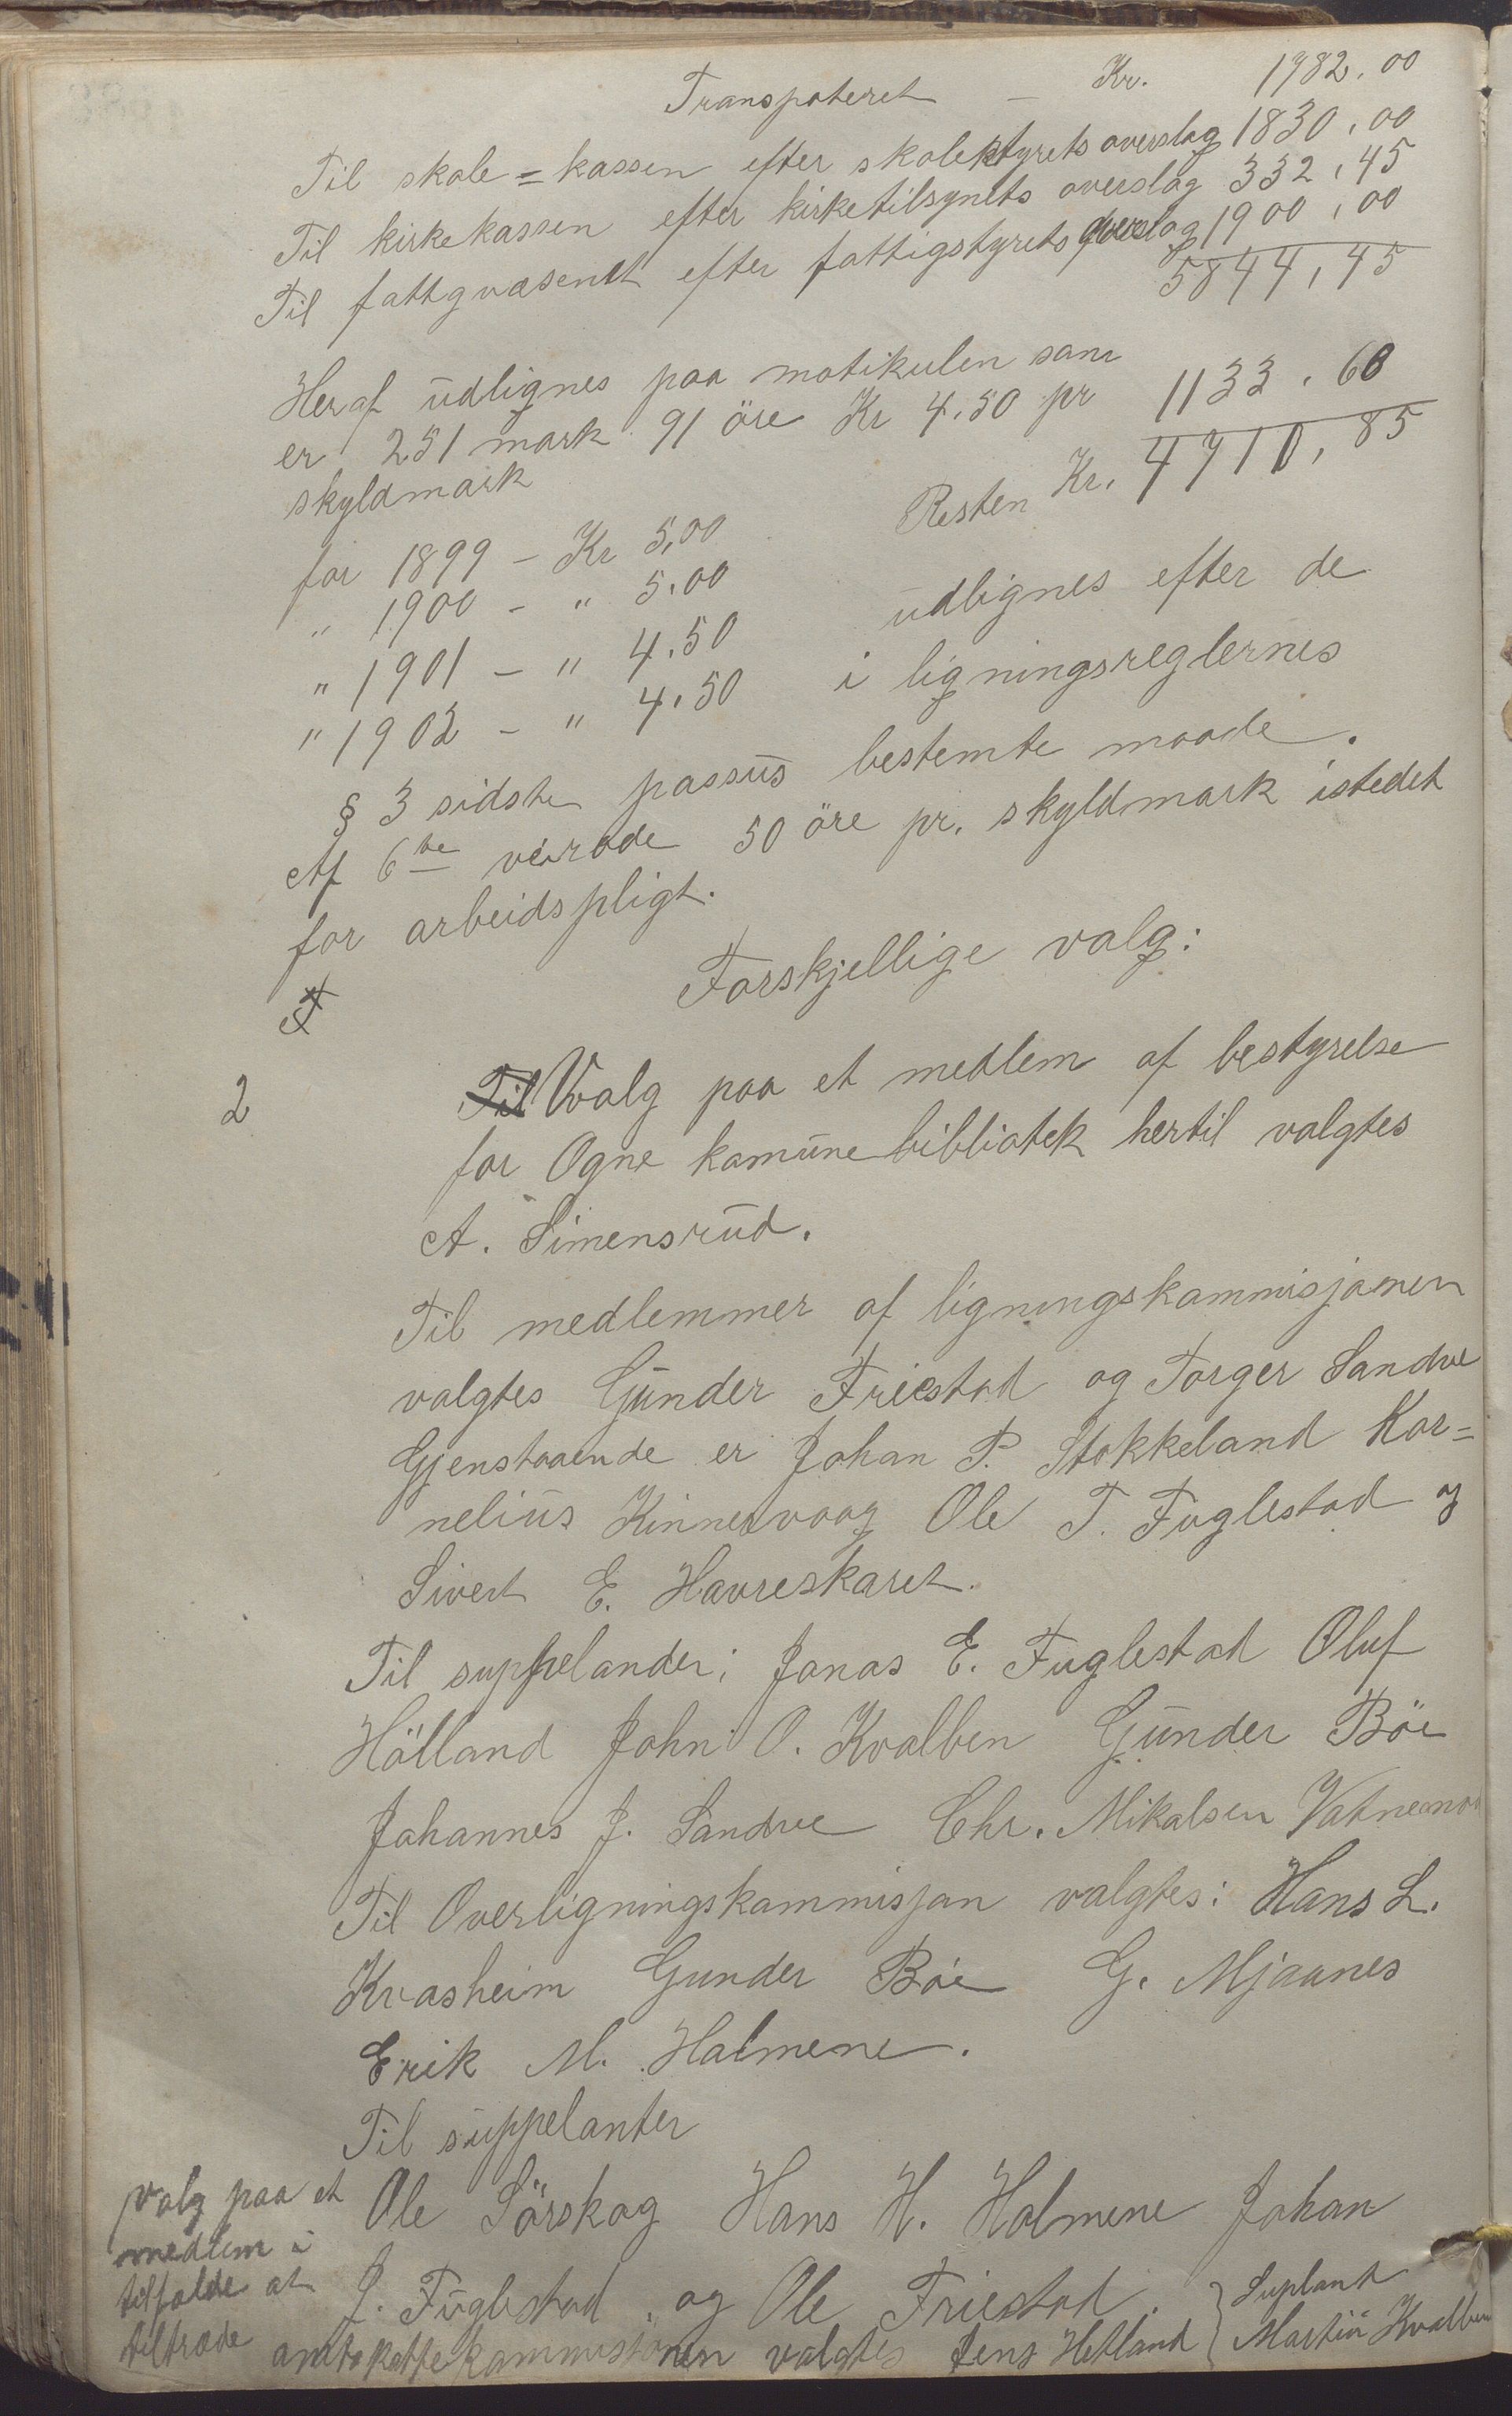 Transpoteret — Kr. 1782.00
Til skole=kassen efter skolestyrets overslag 1830,00
Til kirkekassen efter kirketilsynets overslag 332,45
Til fattgvæsent efter fattigstyrets overslag 1900,00
5844,45
Heraf udlignes paa matikulen som
er 251 mark 91 öre Kr 4.50 pr 1133.60
skyldmark
Resten Kr. 4710,85
for 1899 – Kr 5,00
" 1900 – " 5.00 udlignes efter de
" 1901 – " 4.50
" 1902 – " 4.50 i ligningsreglernes
§ 3 sidste passus bestemte maade.
Af 6te veirode 50 öre pr. skyldmark istedet
for arbeidspligt.
Forskjellige valg:
2 Til Valg paa et medlem af bestyrelse
for Ogne komunebibliotek hertil valgtes
A. Simensrud.
Til medlemmer af ligningskommisjonen
valgtes Gunder Friestad og Torger Sandve
Gjenstaaende er Johan P. Stokkeland Kor=
nelius Kinnesvaag Ole T. Fuglestad og
Sivert E. Havreskaret.
Til suppelander; Jonas E. Fuglestad Oluf
Hölland John O. Kvalben Gunder Böe
Johannes J. Sandve Chr. Mikalsen Vatnemo
Til Overligningskommisjon valgtes: Hans L.
Kvasheim Gunder Böe G. Mjaanes
Erik M. Holmene.
Til suppelanter
Ole Sörskog Hans H. Holmene Johan
J. Fuglestad. og Ole Friestad.
valg paa et
medlem i
tilfælde at
tiltræde amtskattekommisionen valgtes Jens Hetland
Suplant
Martin Kvalben